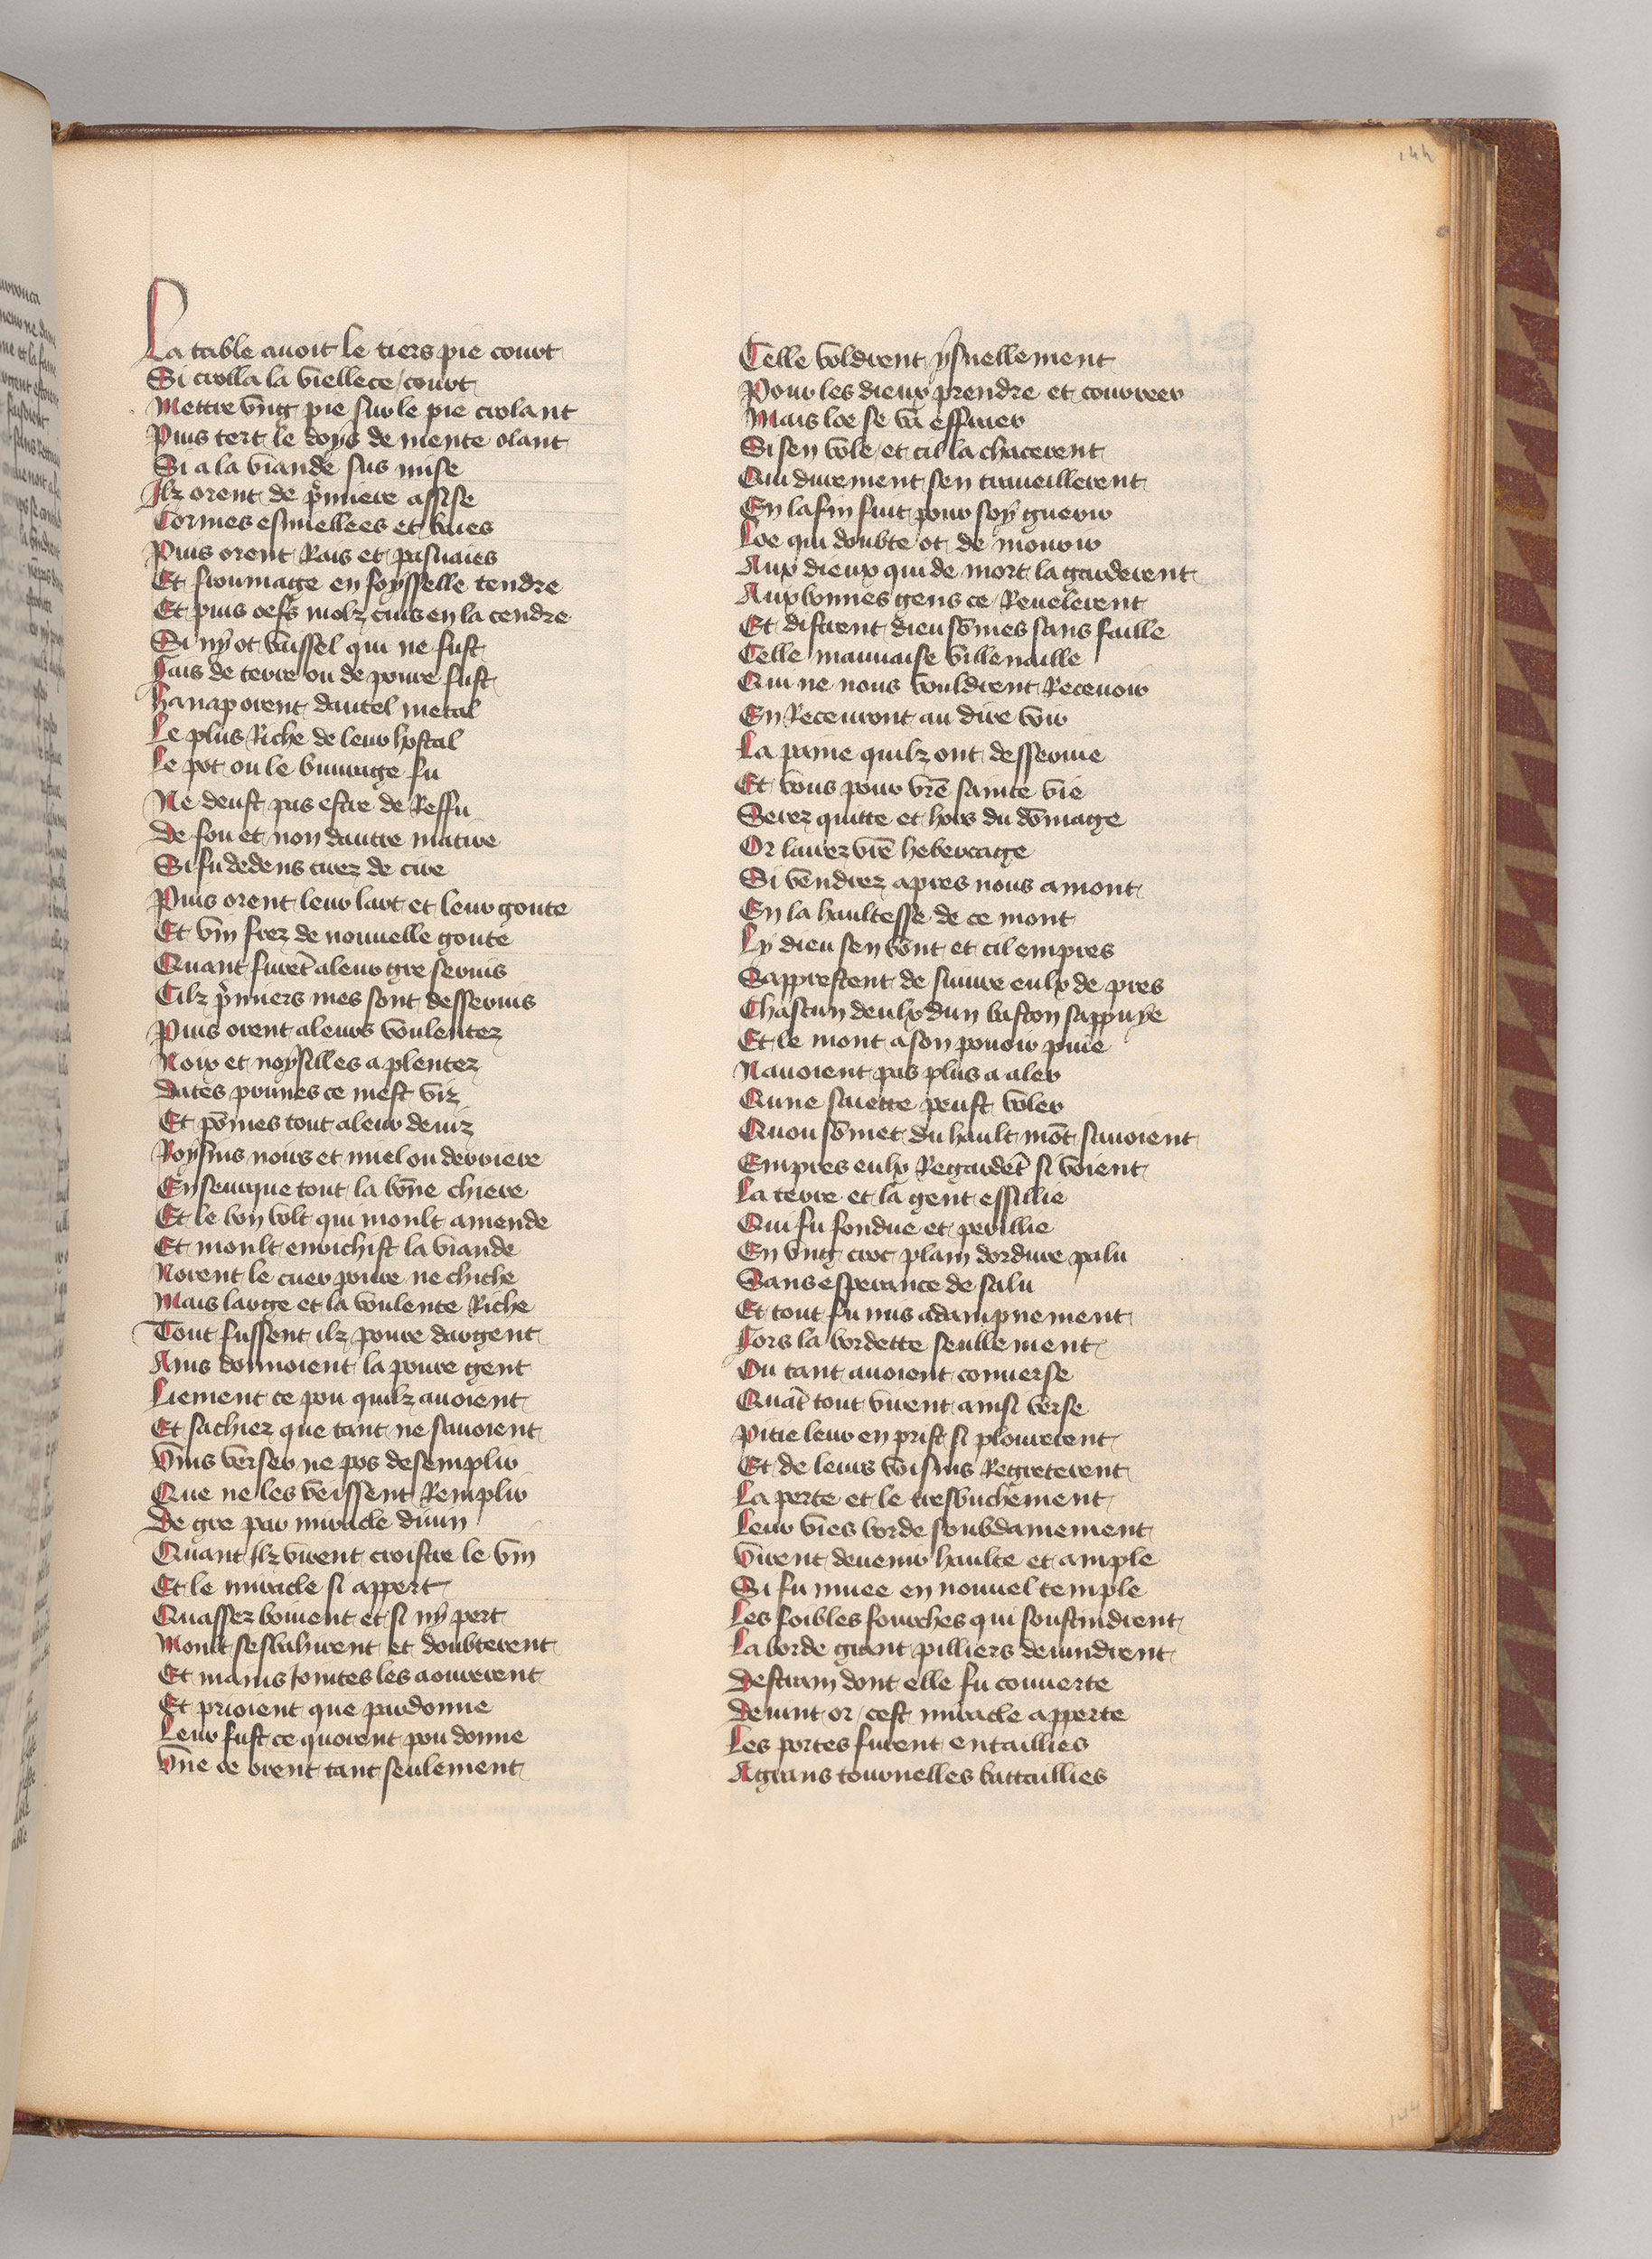 144
La table auoit le tiers pie court
Si crolla la viellece / court
Mettre vng pie sur le pie crolant
Puis tert le doys de mente olant
Si a la viande sus mise
Ilz orent de p̃miere assise
Cormes esmellees et baies
Puis orent Rais et pasnaies
Et froumage en foysselle tendre
Et puis oefs molz cuis en la cendre
Si ny ot vaissel qui ne fust
Fais de terre ou de poure fust
Hanap orent dautel metal
Le plus Riche de leur hostal
Le pot ou le buurage fu
Ne deust pas estre de Reffu
De fou et non dautre matire
Si fu dedens cirez de cire
Puis orent leur lart et leur goute
Et vin frez de nouuelle goute
Quant furet̃ a leur gre seruis
Cilz p̃miers mes sont desseruis
Puis orent a leurs voulentez
Noix et noysilles a plentez
Dates prunes ce mest viz
Et põmes tout a leur deuiz
Roysins noirs et miel ou derriere
Enseurque tout la bõne chiere
Et le bon volt qui moult amende
Et moult enrichist la viande
Norent le cuer poure ne chiche
Mais large et la voulente Riche
Tout fussent ilz poure dargent
Ains donnoient la poure gent
Liement ce pou quilz auoient
Et sachiez que tant ne sauoient
Vins verser ne pos desemplir
Que ne les veissent Remplir
De gre par miracle diuin
Quant Ilz virent croistre le vin
Et le miracle si appert
Quassez boiuent et si ny pert
Moult sesbahirent et doubterent
Et mains iointes les aourerent
Et prioient que pardonne
Leur fust ce quorent pou donne
Vne oe orent tant seulement
Celle voldrent ysnellement
Pour les dieux prendre et courreer
Mais loe se va effraer
Si sen vole / et cil la chacerent
Qui durement sen traueillerent
En la fin fuit pour soy guerir
Loe qui doubte ot de mourir
Aux dieux qui de mort la garderent
Aux bonnes gens ce Reuelerent
Et distrent dieu sõmes sans faille
Celle mauuaise villenaille
Qui ne nous vouldrent Receuoir
En Receuront au dire voir
La paine quilz ont desseruie
Et vous pour vrẽ sainte vie
Serez quitte et hors du dõmage
Or laiez vrẽ hebercage
Si vendrez apres nous a mont
En la haultesse de ce mont
Ly dieu sen vont et cil empres
Sapprestent de suiure eulx de pres
Chascun deulx dun baston sappuye
Et le mont a son pouoir puie
Nauoient pas plus a aler
Qune saiette peust voler
Quou sõmet du hault mõt sauoient
Empres eulx Regardet̃ si voient
La terre et la gent essillie
Qui fu fondue et perillie
En vng croc plain dordure palu
Sans esperance de salu
Et tout fu mis a dampnement
Fors la bordette seullement
Ou tant auoient conuerse
Quãt tout virent ainsi verse
Pitie leur en prist si plourerent
Et de leurs voisins Regreterent
La perte et le tresbuchement
Leur vies borde soubdainement
Virent deuenir haulte et ample
Si fu muee en nouuel temple
Les foibles fourches qui soustindrent
La borde grant pilliers deuindrent
Destrain dont elle fu couuerte
Deuint or / cest miracle apperte
Les portes furent entaillies
A grans tournelles battaillies
144